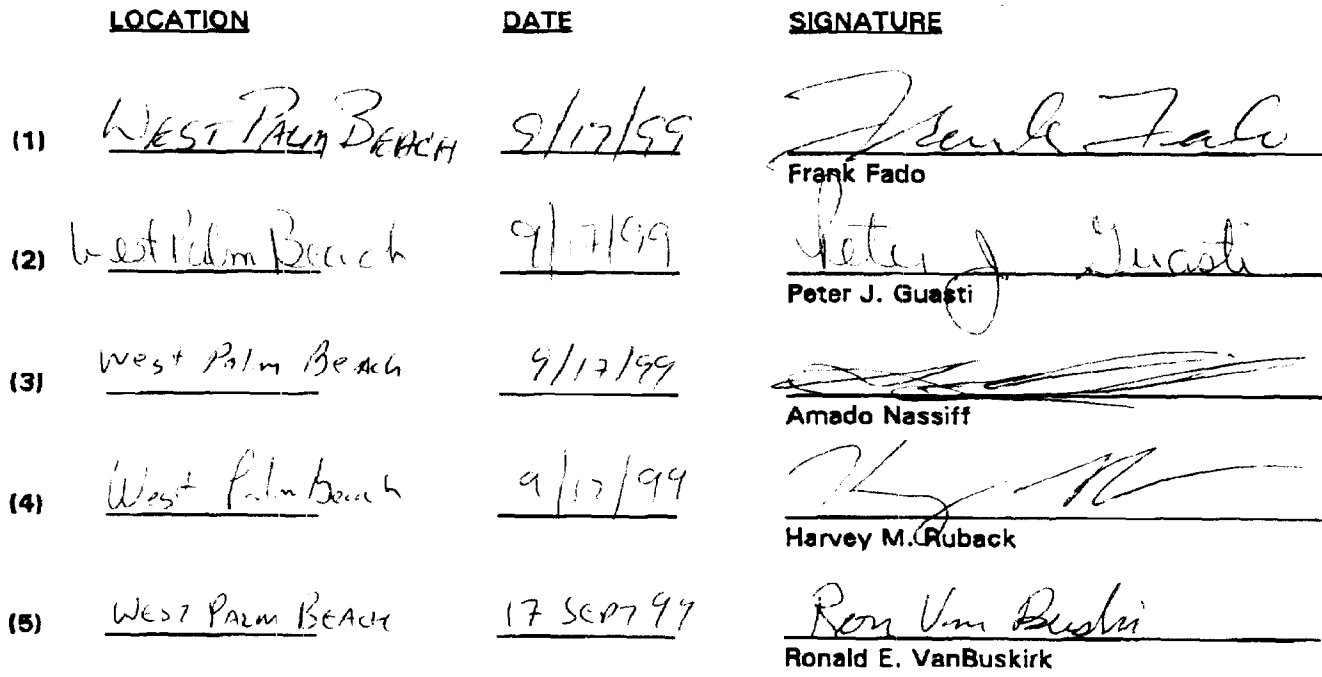 LOCATION DATE SIGNATURE
(1) WEST PALM BEACH 9/17/99 Frank Fado
Frank Fado
(2) West Palm Beach 9/17/99 Peter J. Guasti
Peter J. Guasti
(3) West Palm Beach 9/17/99
Amado Nassiff
(4) West Palm Beach 9/17/99
Harvey M. Ruback
(5) WEST PALM BEACH 17 SEPT 99 Ron Van Buskirk
Ronald E. VanBuskirk